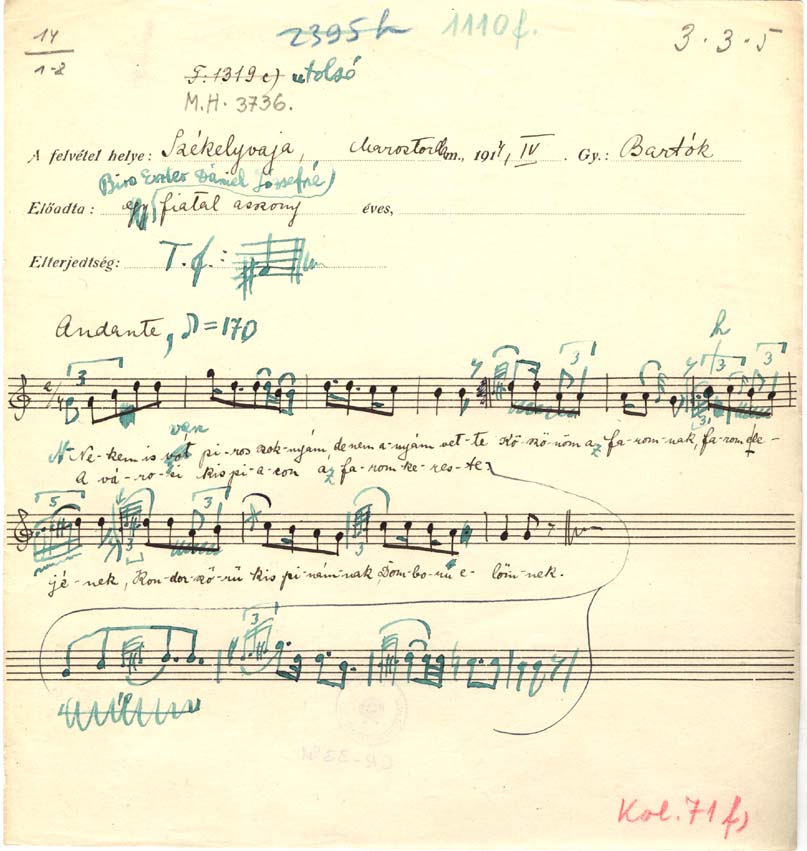 14
1-8
2395h
1110f.
3.3.5
F. 1319 c) utolsó
M.H. 3736.
A felvétel helye: Székelyvaja, Marostorda m., 1914, IV. Gy.: Bartók
Biró Eszter Dániel Józsefné)
Előadta: egy fiatal asszony éves,
Elterjedtség: T.f.:
Andante, ♪=170
h
3
3
3
3
van
Ne-kem is vót pi-ros szok-nyám, de nem a-nyám vet-te Kö-szö-nöm az fa-rom-nak, fa-rom
A vá-ro-si kis pi-a-con az fa-rom ke-res-te
5
3
3
3
jé-nek, Kon-dor-szö-rü kis pi-nám-nak, Dom-bo-rú e-löm-nek.
3
Kol. 71 f)